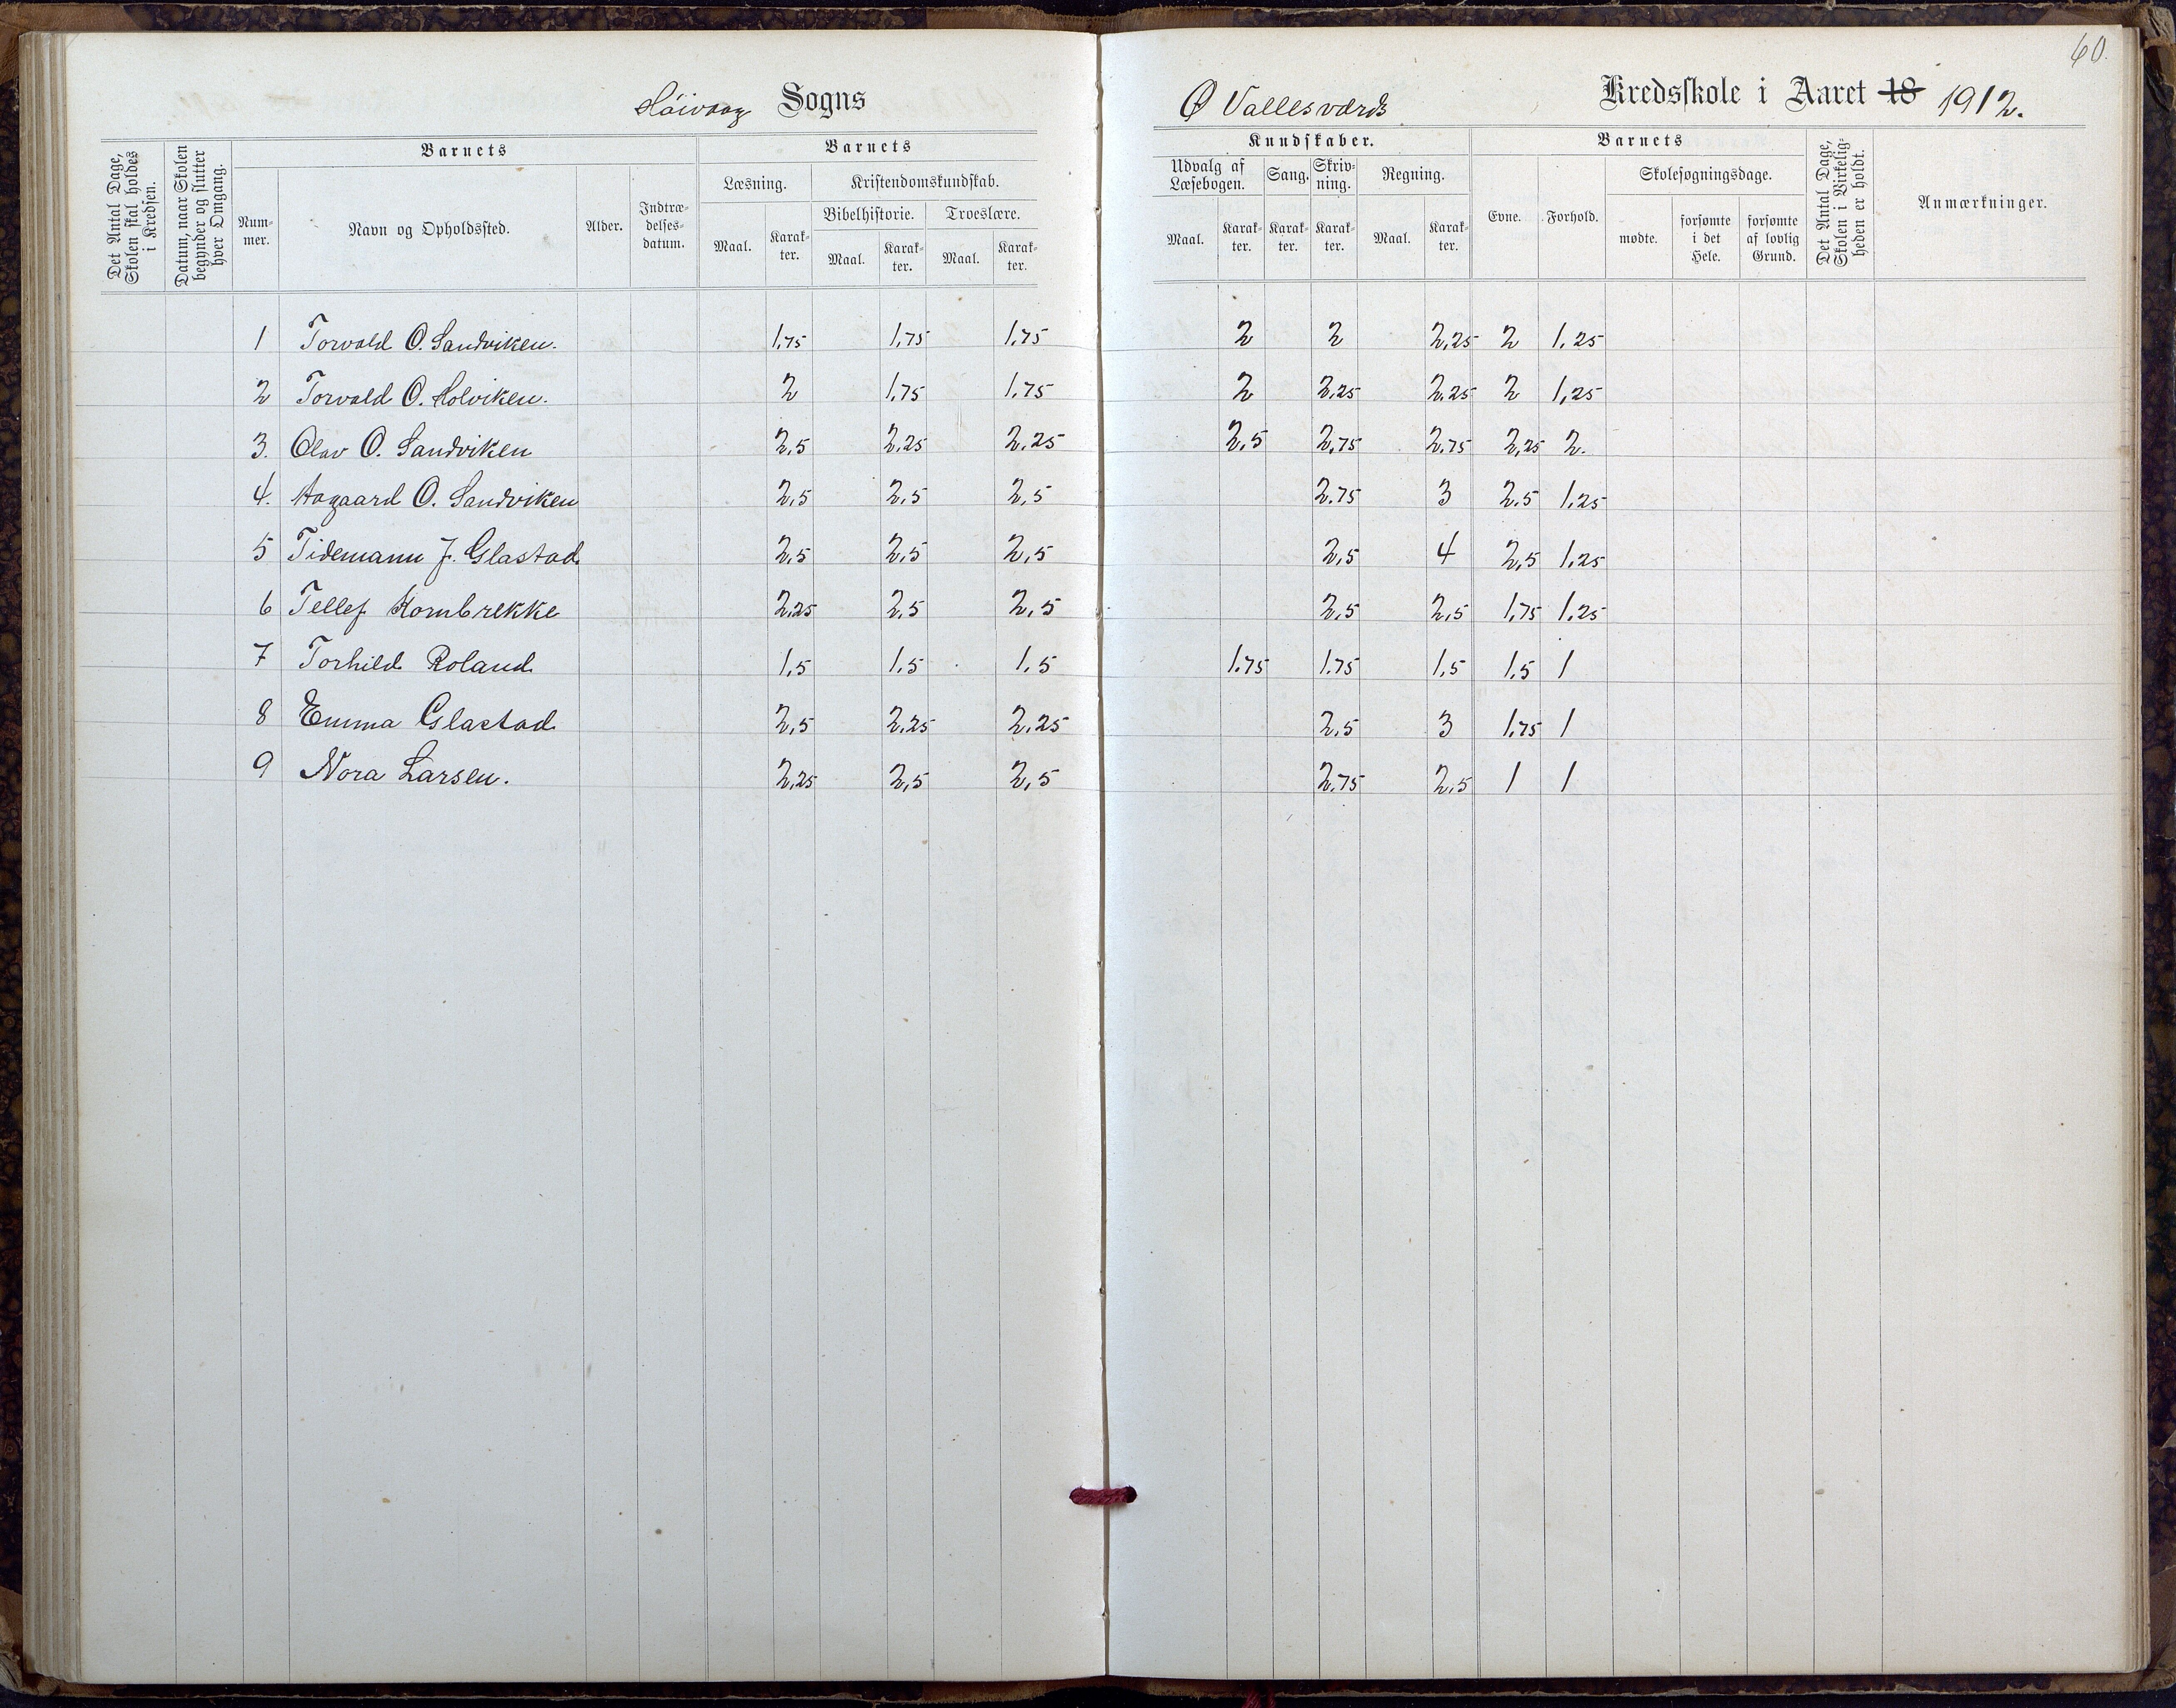 60.
Høivaag Sogns
Ø Vallesværds Kredsskole i Aaret 18 1912.
Det Antal Dage, Skolen skal holdes i Kredsen.
Datum, naar Skolen begynder og slutter hver Omgang.
Barnets
Nummer.
Navn og Opholdssted.
Alder.
Indtrædelsesdatum.
Barnets
Læsning.
Kristendomskundskab.
Bibelhistorie.
Troeslære.
Maal. Karakter. Maal. Karakter. Maal. Karakter.
Kundskaber.
Udvalg af Læsebogen.
Sang.
Skrivning.
Regning.
Maal. Karakter. Karakter. Karakter. Maal. Karakter.
Barnets
Evne.
Forhold.
Skolesøgningsdage.
mødte.
forsømte i det Hele.
forsømte af lovlig Grund.
Det Antal Dage, Skolen i Virkeligheden er holdt.
Anmærkninger.
1 Torvald O. Sandviken. 1,75 1,75 1,75 2 2 2,25 2 1,25
2 Torvald O. Holviken. 2 1,75 1,75 2 2,25 2,25 2 1,25
3. Olav O. Sandviken 2,5 2,25 2,25 2,5 2,75 2,75 2,25 2.
4. Aagaard O. Sandviken 2,5 2,5 2,5 2,75 3 2,5 1,25
5 Tidemann J. Glastad 2,5 2,5 2,5 2,5 4 2,5 1,25
6 Tellef Kombrekke 2,25 2,5 2,5 2,5 2,5 1,75 1,25
7 Torhild Roland 1,5 1,5 1,5 1,75 1,75 1,5 1,5 1
8 Emma Glastad 2,5 2,25 2,25 2,5 3 1,75 1
9 Nora Larsen. 2,25 2,5 2,5 2,75 2,5 1 1